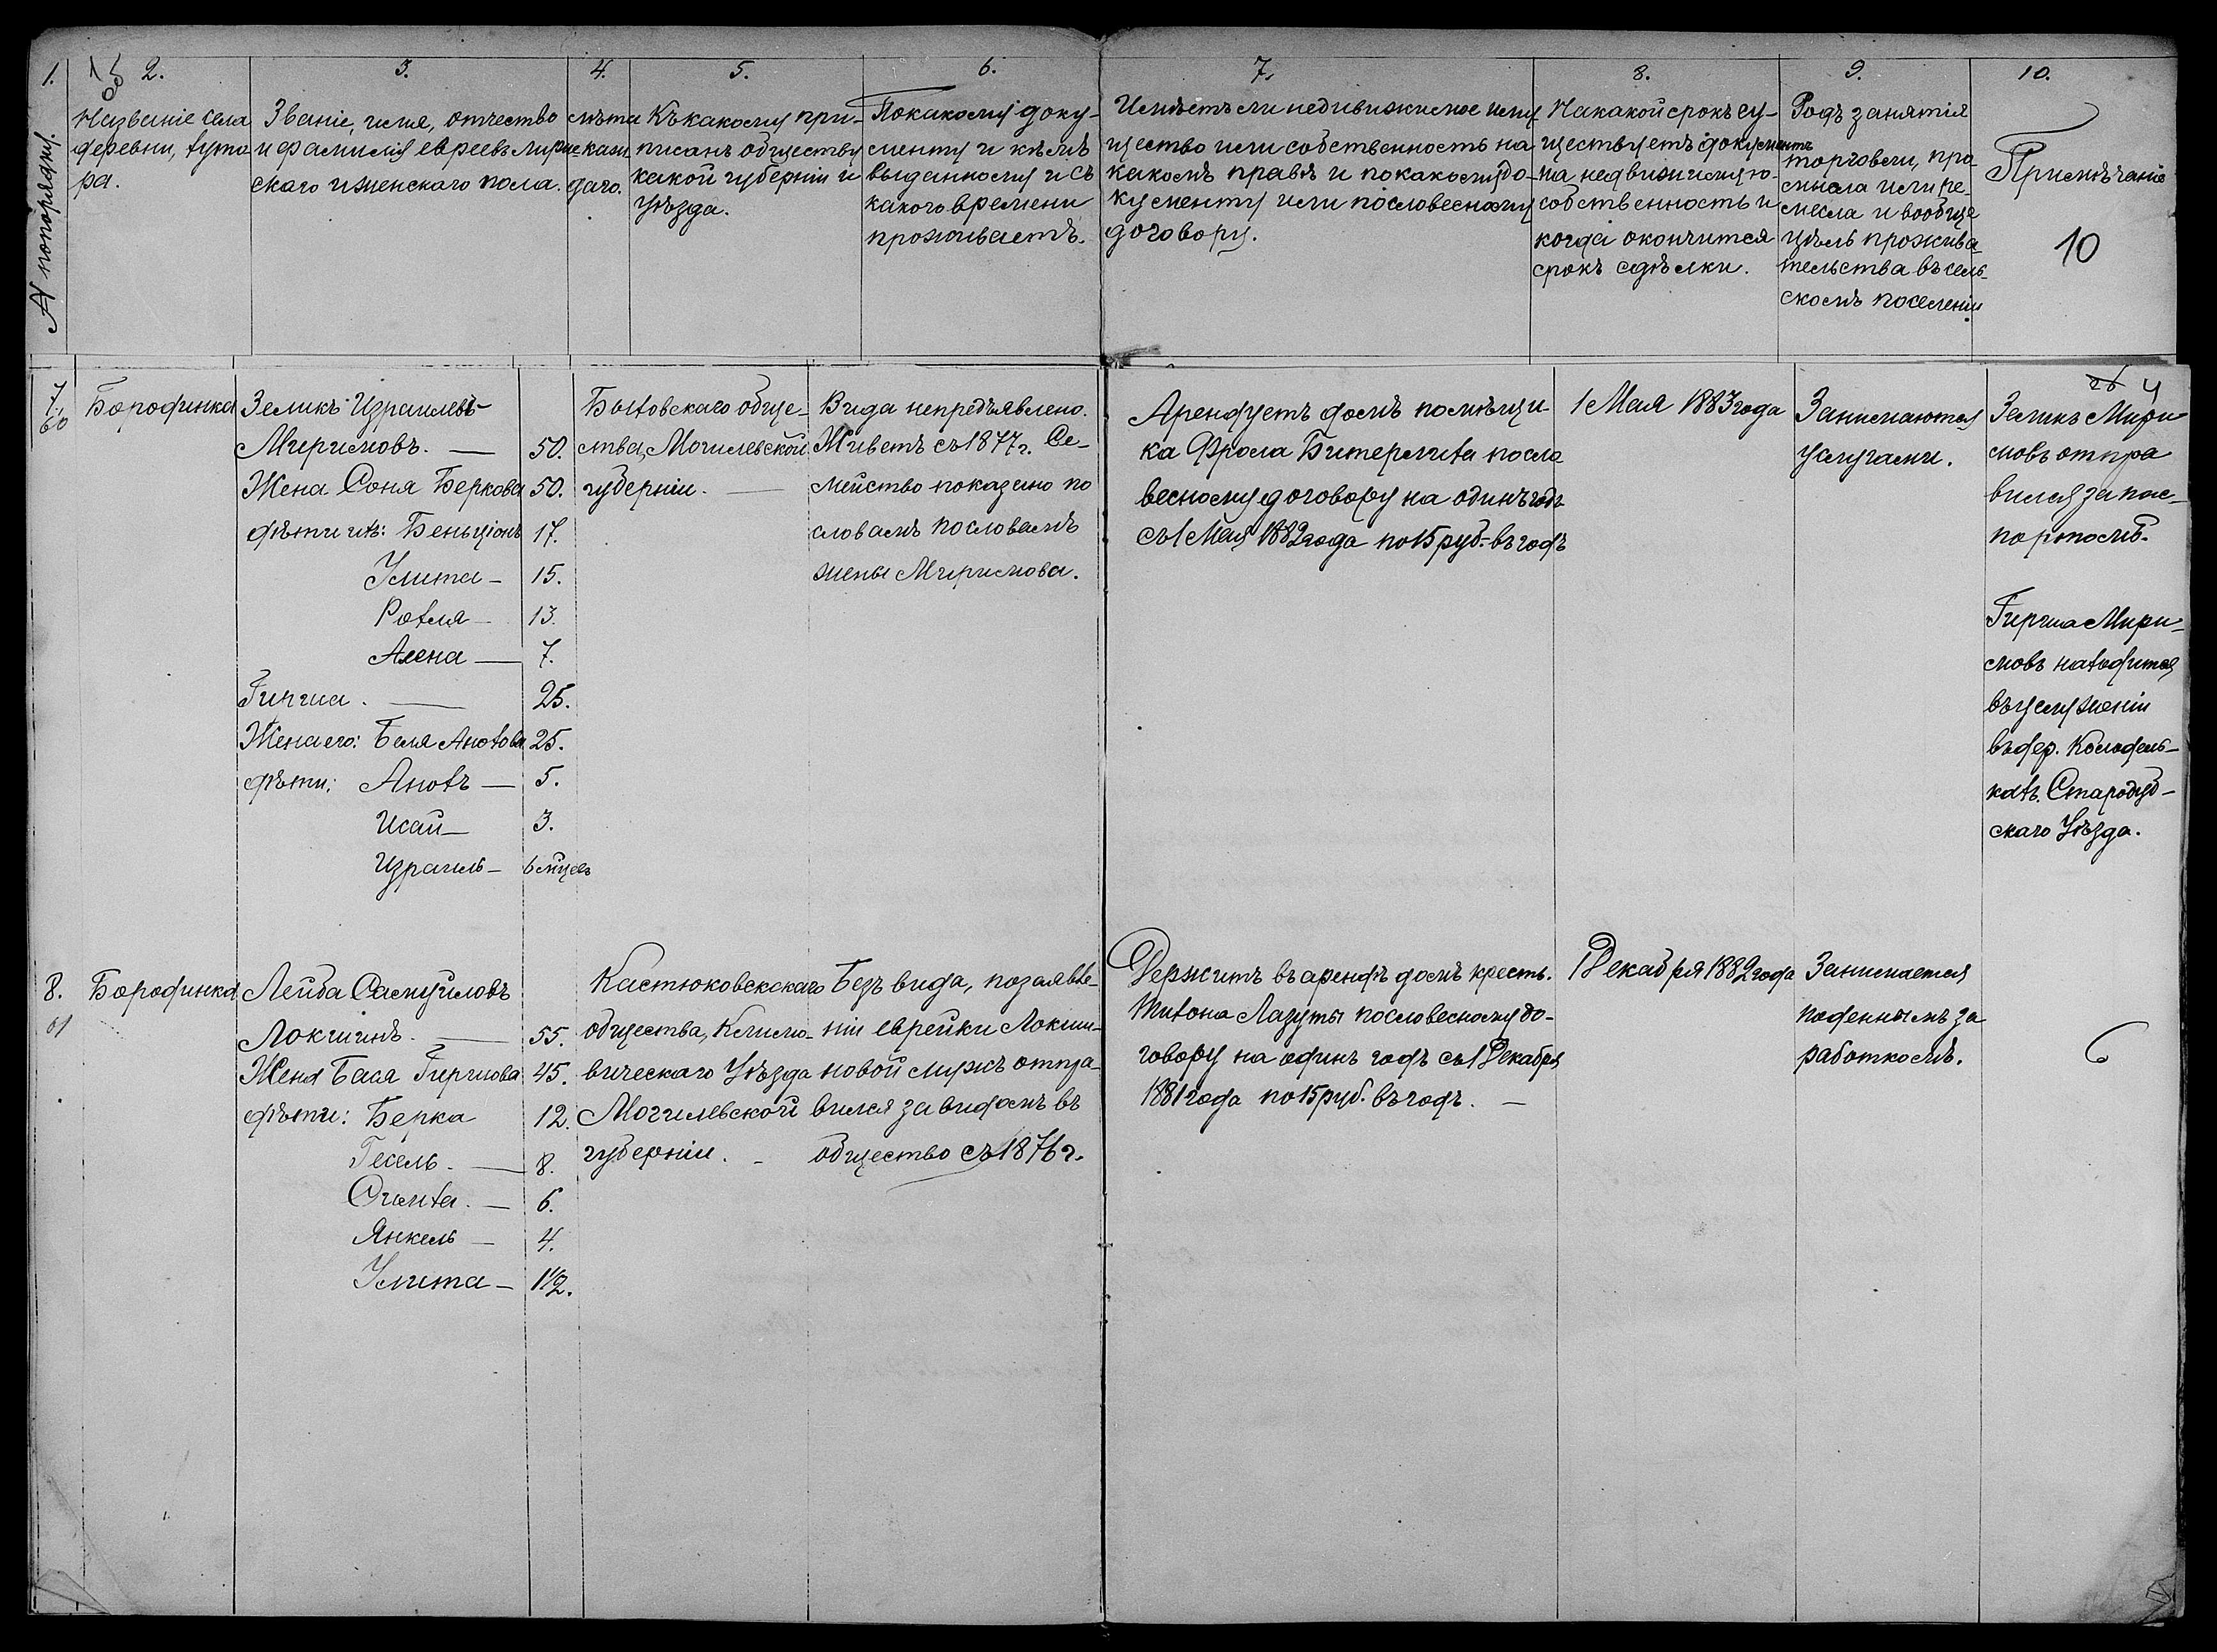 1. 2. 3. 4. 5. 6. 7. 8. 9. 10.
№ попорядку.
Названіе села
деревни, хуто
ра.
Званіе, имя, отчество
и фамилія евреевъ муж
скаго и женскаго пола.
лѣта
кажи
даго.
Къ какому при-
писанъ обществу
какой губерніи и
уѣзда.
По какому доку-
менту и кѣмъ
выданному и съ
какого времени
проживаетъ.
Имѣетъ ли недвижимое иму
щество или собственность на
какомъ правѣ и по какому до-
кументу или пословесному
договору.
На какой срокъ су-
ществуетъ документъ
на недвижимую
собственность и
когда окончится
срокъ сдѣлки.
Родъ занятія
торговли, про
мысла или ре-
месла и вообще
цѣль прожива
тельства въ сель-
скомъ поселеніи
Примѣчаніе
10
4
7.
60
Бородинка
Зеликъ Израилевъ
Миримовъ. — 50.
Жена Соня Беркова 50.
дѣти ихъ: Беньціонъ 17.
Улита — 15.
Рохля — 13.
Алена — 7.
Гирша. — 25.
Жена его: Беля Анохова 25.
дѣти: Анохъ — 5.
Исай — 3.
Израиль — 6 мцевъ
Быховскаго обще-
ства, Могилевской
губерніи. —
Вида непредъявлено.
Живетъ съ 1877 г. Се-
мейство показано по
словамъ пословамъ
жены Миримова.
Арендуетъ домъ помѣщи-
ка Фрола Битермиха посло
весному договору на одинъ годъ
съ 1 Мая 1882 года по 15 руб. въ годъ
1 Мая 1883 года
Занимаются
услугами.
Зеликъ Мири
мовъ отпра
вился за пас-
портомъ.
Гирша Мири-
мовъ находится
въ услуженіи
въ дер. Колодезь-
кахъ. Стародуб-
скаго Уѣзда.
8.
61
Бородинка
Лейба Самуйловъ
Локшинъ. — 55.
Жена Бася Гиршова 45.
дѣти: Берка 12.
Гесель. — 8.
6.
Янкель — 4.
Улита — 1 1/2.
Кастюковскскаго
общества, Климо-
вическаго Уѣзда
Могилевской
губерніи. —
Безъ вида, по заявле-
ніи еврейки Локши-
новой мужъ отпра-
вился за видомъ въ
общество съ 1876 г.
Держитъ въ арендѣ домъ крестъ.
Тихона Лазуты пословесному до-
говору на одинъ годъ съ 1 Декабря
1881 года по 15 руб. въ годъ. —
1 Декабря 1882 года
Занимается
поденнымъ за
работкомъ.